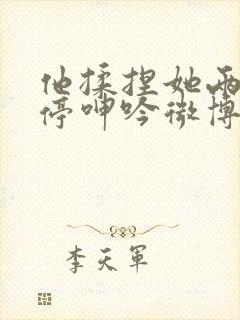 他揉捏她两
停呻吟微博
李天军